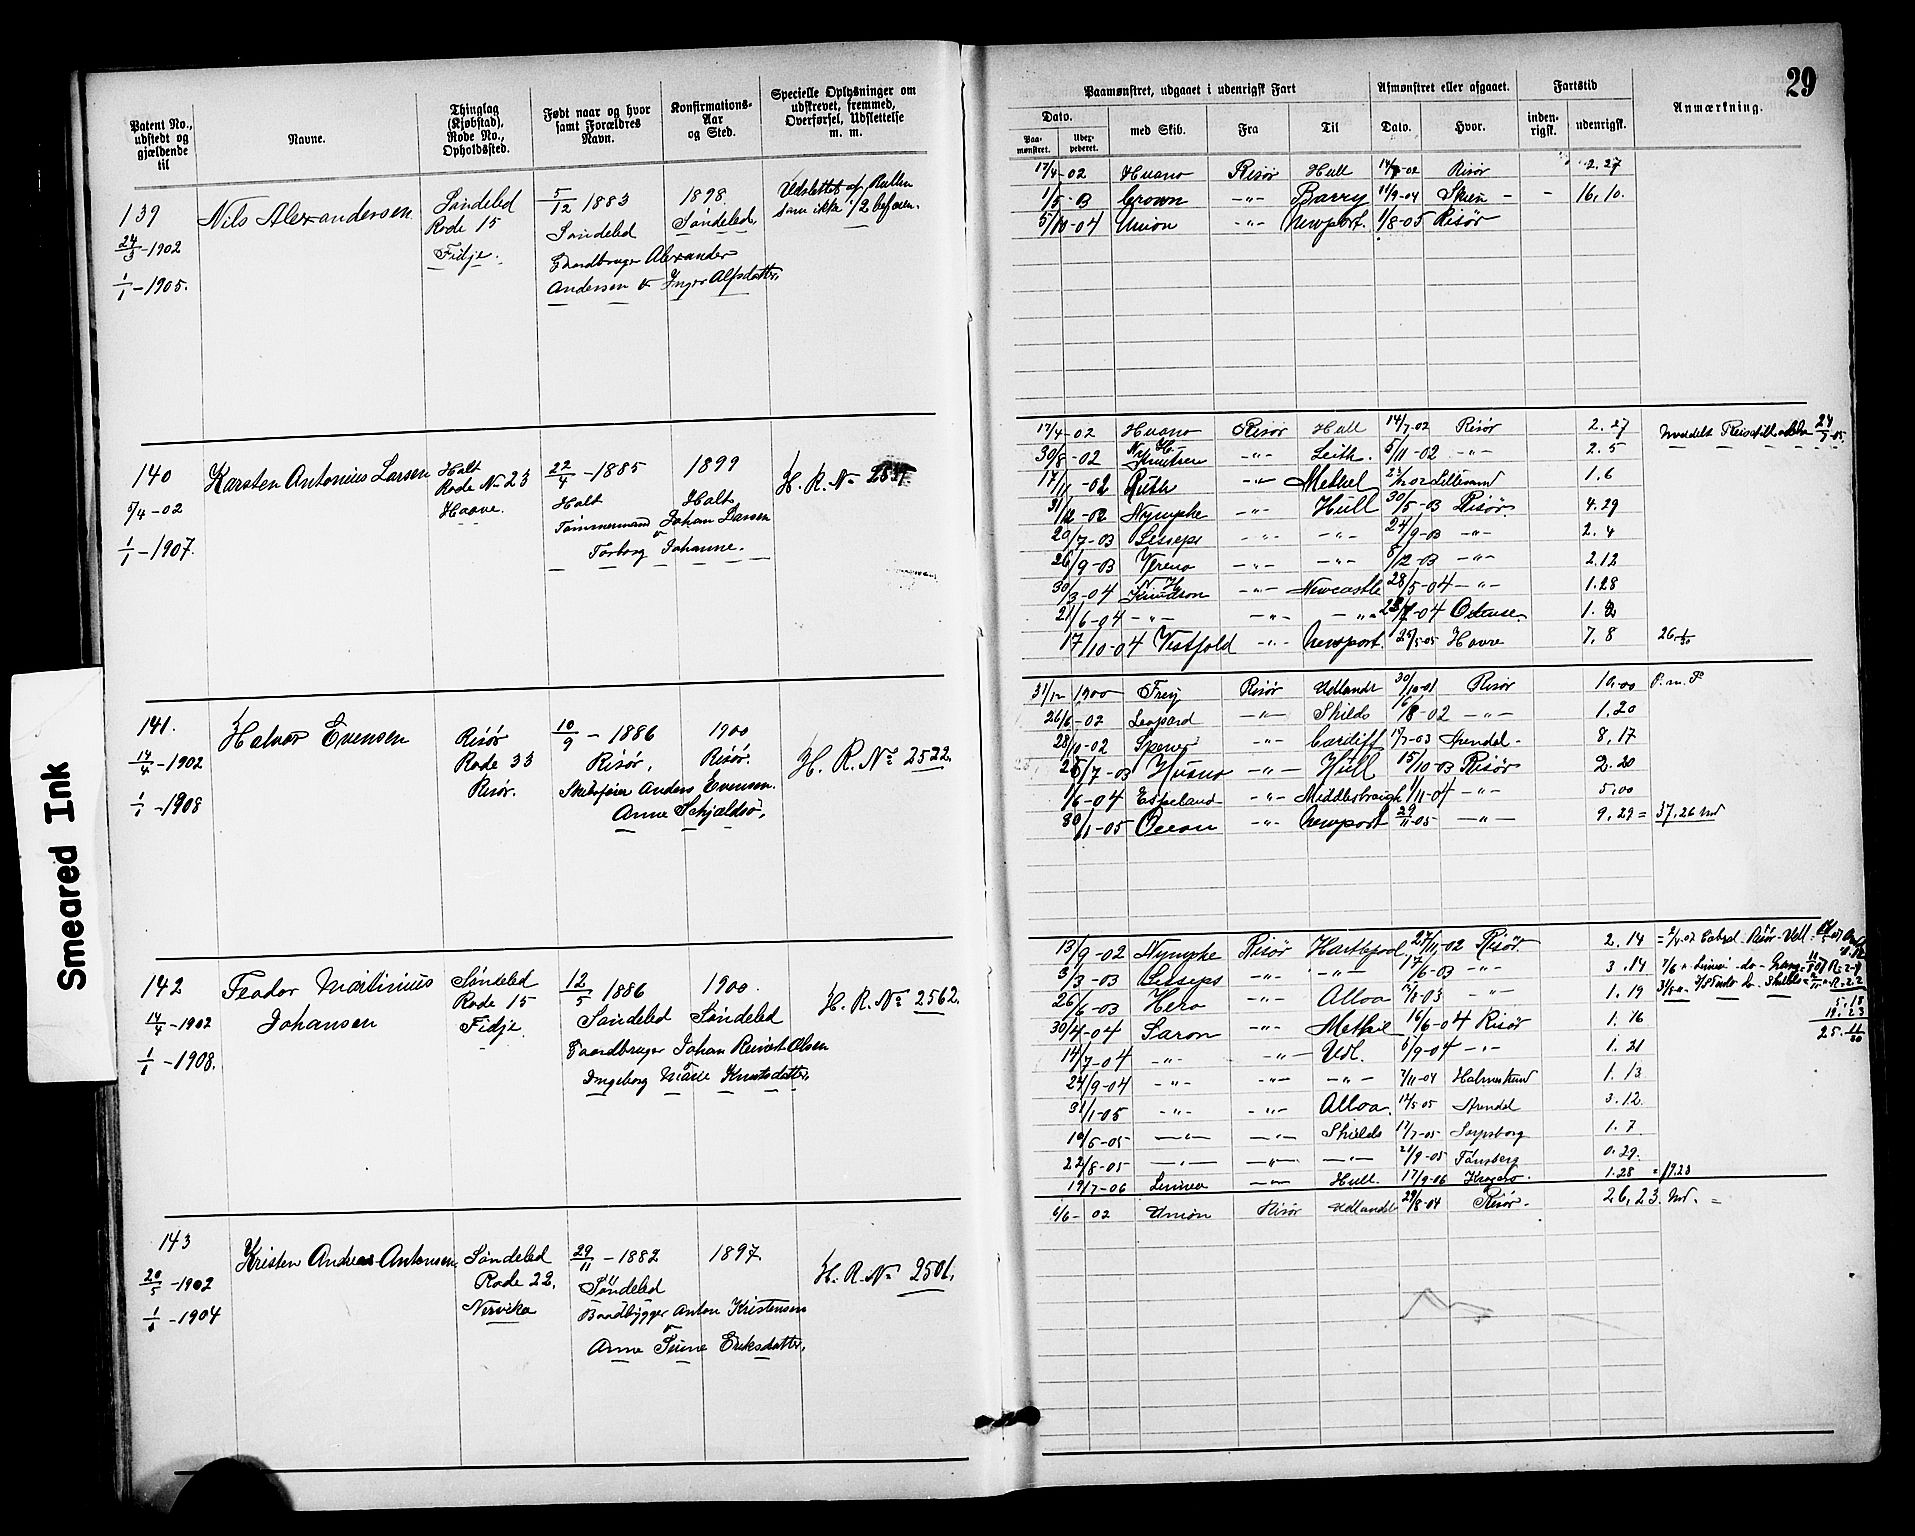 29
Smeared Ink
Patent No., udstedt og gjældende til
Navne.
Thinglag (Kjøbstad), Rode No., Opholdssted.
Født naar og hvor samt Forældres Navn.
Konfirmations-Aar og Sted.
Specielle Oplysninger om udskrevet, fremmed, Overførsel, Udslettelse m. m.
Paamønstret, udgaaet i udenrigsk Fart
Afmønstret eller afgaaet.
Fartstid
Anmærkning.
Dato.
med Skib.
Fra
Til
Dato.
Hvor.
inden-rigsk.
udenrigsk.
Paa-mønstret.
139
24/3-1902
1/1-1905.
Nils Alexandersen
Søndeled
Rode 15
Fidje.
5/12 1883
Søndeled
Gaardbruger Alexander
Andersen & Inger Alfsdatter,
1898
Søndeled,
Udslettet af Rullen
som ikke 1/2 befaren.
17/4-02 Huano Risør Hull 02 Risør 2.27
1/5-03 Crown -"- Barry 14/9-04 Skien - - 16.10.
5/10-04 Union -"- Newport. 1/8-05 Risør
140
5/4-02
1/1-1907.
Karsten Antonius Larsen
Holt
Rode No 23
Haave.
22/4-1885
Holt
Tømmermand Johan Larsen
& Torborg Johanne.
1899
Holt
H. R. No
17/4-02 Huano Risør Hull 14/7-02 Risør 2.27
30/8-02 N. H. Knutsen -"- Leith. 5/11-02 -"- 2.5
17/11-02 Ruth -"- Methel 02 Lillesand 1.6
31/12-02 Nymphe -"- Hull 30/5-03 Risør. 4.29
20/7-03 Lesseps -"- -"- 24/9-03 -"- 2.4
26/9-03 Verena -"- -"- 8/12-03 -"- 2.12
30/3-04 N. H. Knudson -"- Newcastle 28/5-04 -"- 1.28
21/6-04 -"- -"- -"- -04 Odense.
17/10-04 Vestfold -"- Newport. 25/5-05 Haave 7.8
141.
14/4-1902
1/1-1908
Halvor Evensen
Risør
Rode 33
Risør.
10/9-1886
Risør,
Skibsfører Anders Evensen.
Anne Schjeldsø,
1900
Risør.
H. R. No 2522.
31/12 1900 Frey Risør Udlandet 30/10-01 Risør 10.00 P. m. P
26/6-02 Leopard -"- Shilds -02 -"- 1.20
28/10-02 -"- Cardiff 17/7-03 Arendal- 8.17
/7-03 Huano -"- Hull 15/10-03 Risør 2.20
1/6-04 Espeland -"- Middlesbraigh 1/11-04 -"- 5.00
30/1-05 Ocean -"- Newport 29/11-05 -"- 9.29 = 37.26 Md
142
14/4-1902
1/1-1908.
Feodor Martinius
Johansen
Søndeled
Rode 15
Fidje
12/5 1886
Søndeled
Gaardbruger Johan Reinert Olsen
& Ingeborg Marie Knutsdatter,
1900.
Søndeled
H. R. No 2562.
13/9-02 Nymphe Risør Hartlepool 27/11-02 Risør 2.14
3/3-03 Lesseps -"- -"- 17/6-03 -"- 3.14
26/6-03 Hero -"- Alloa -03 -"- 1.19
30/4-04 Saron -"- Methil 16/6-04 Risør 1.16
14/7-04 -"- -"- Udl. 5/9-04 -"- 1.21
24/9-04 -"- -"- -"- 7/11-04 Halmestrand 1.13
31/1-05 -"- -"- Alloa. 12/5 05 Arendal 3.12.
10/6-05 -"- -"- Shields 17/7-05 Sarpsborg 1.7
22/8-05 -"- -"- -"- 21/9-05 Tønsberg 0.29.
19/7-06 Linnea -"- Hull. 17/9-06 Kragerø. 1.28 = 19.23
143
20/5-1902
1/1-1904
Kristen Andreas Antonsen,
Søndeled
Rode 22.
Nervika
29/11-1882
Søndeled
Baadbygger Anton Kristensen
&
Anne Severine Eriksdatter,
1897
H. R. No 2501.
6/6-02 Union Risør Udlandet 29/8-04 Risør. 26.23 Md. =